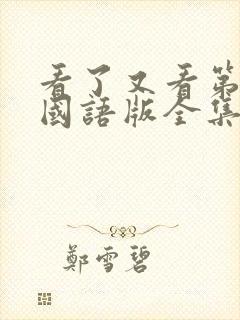 看了又看第
國語版全集
鄭雪碧